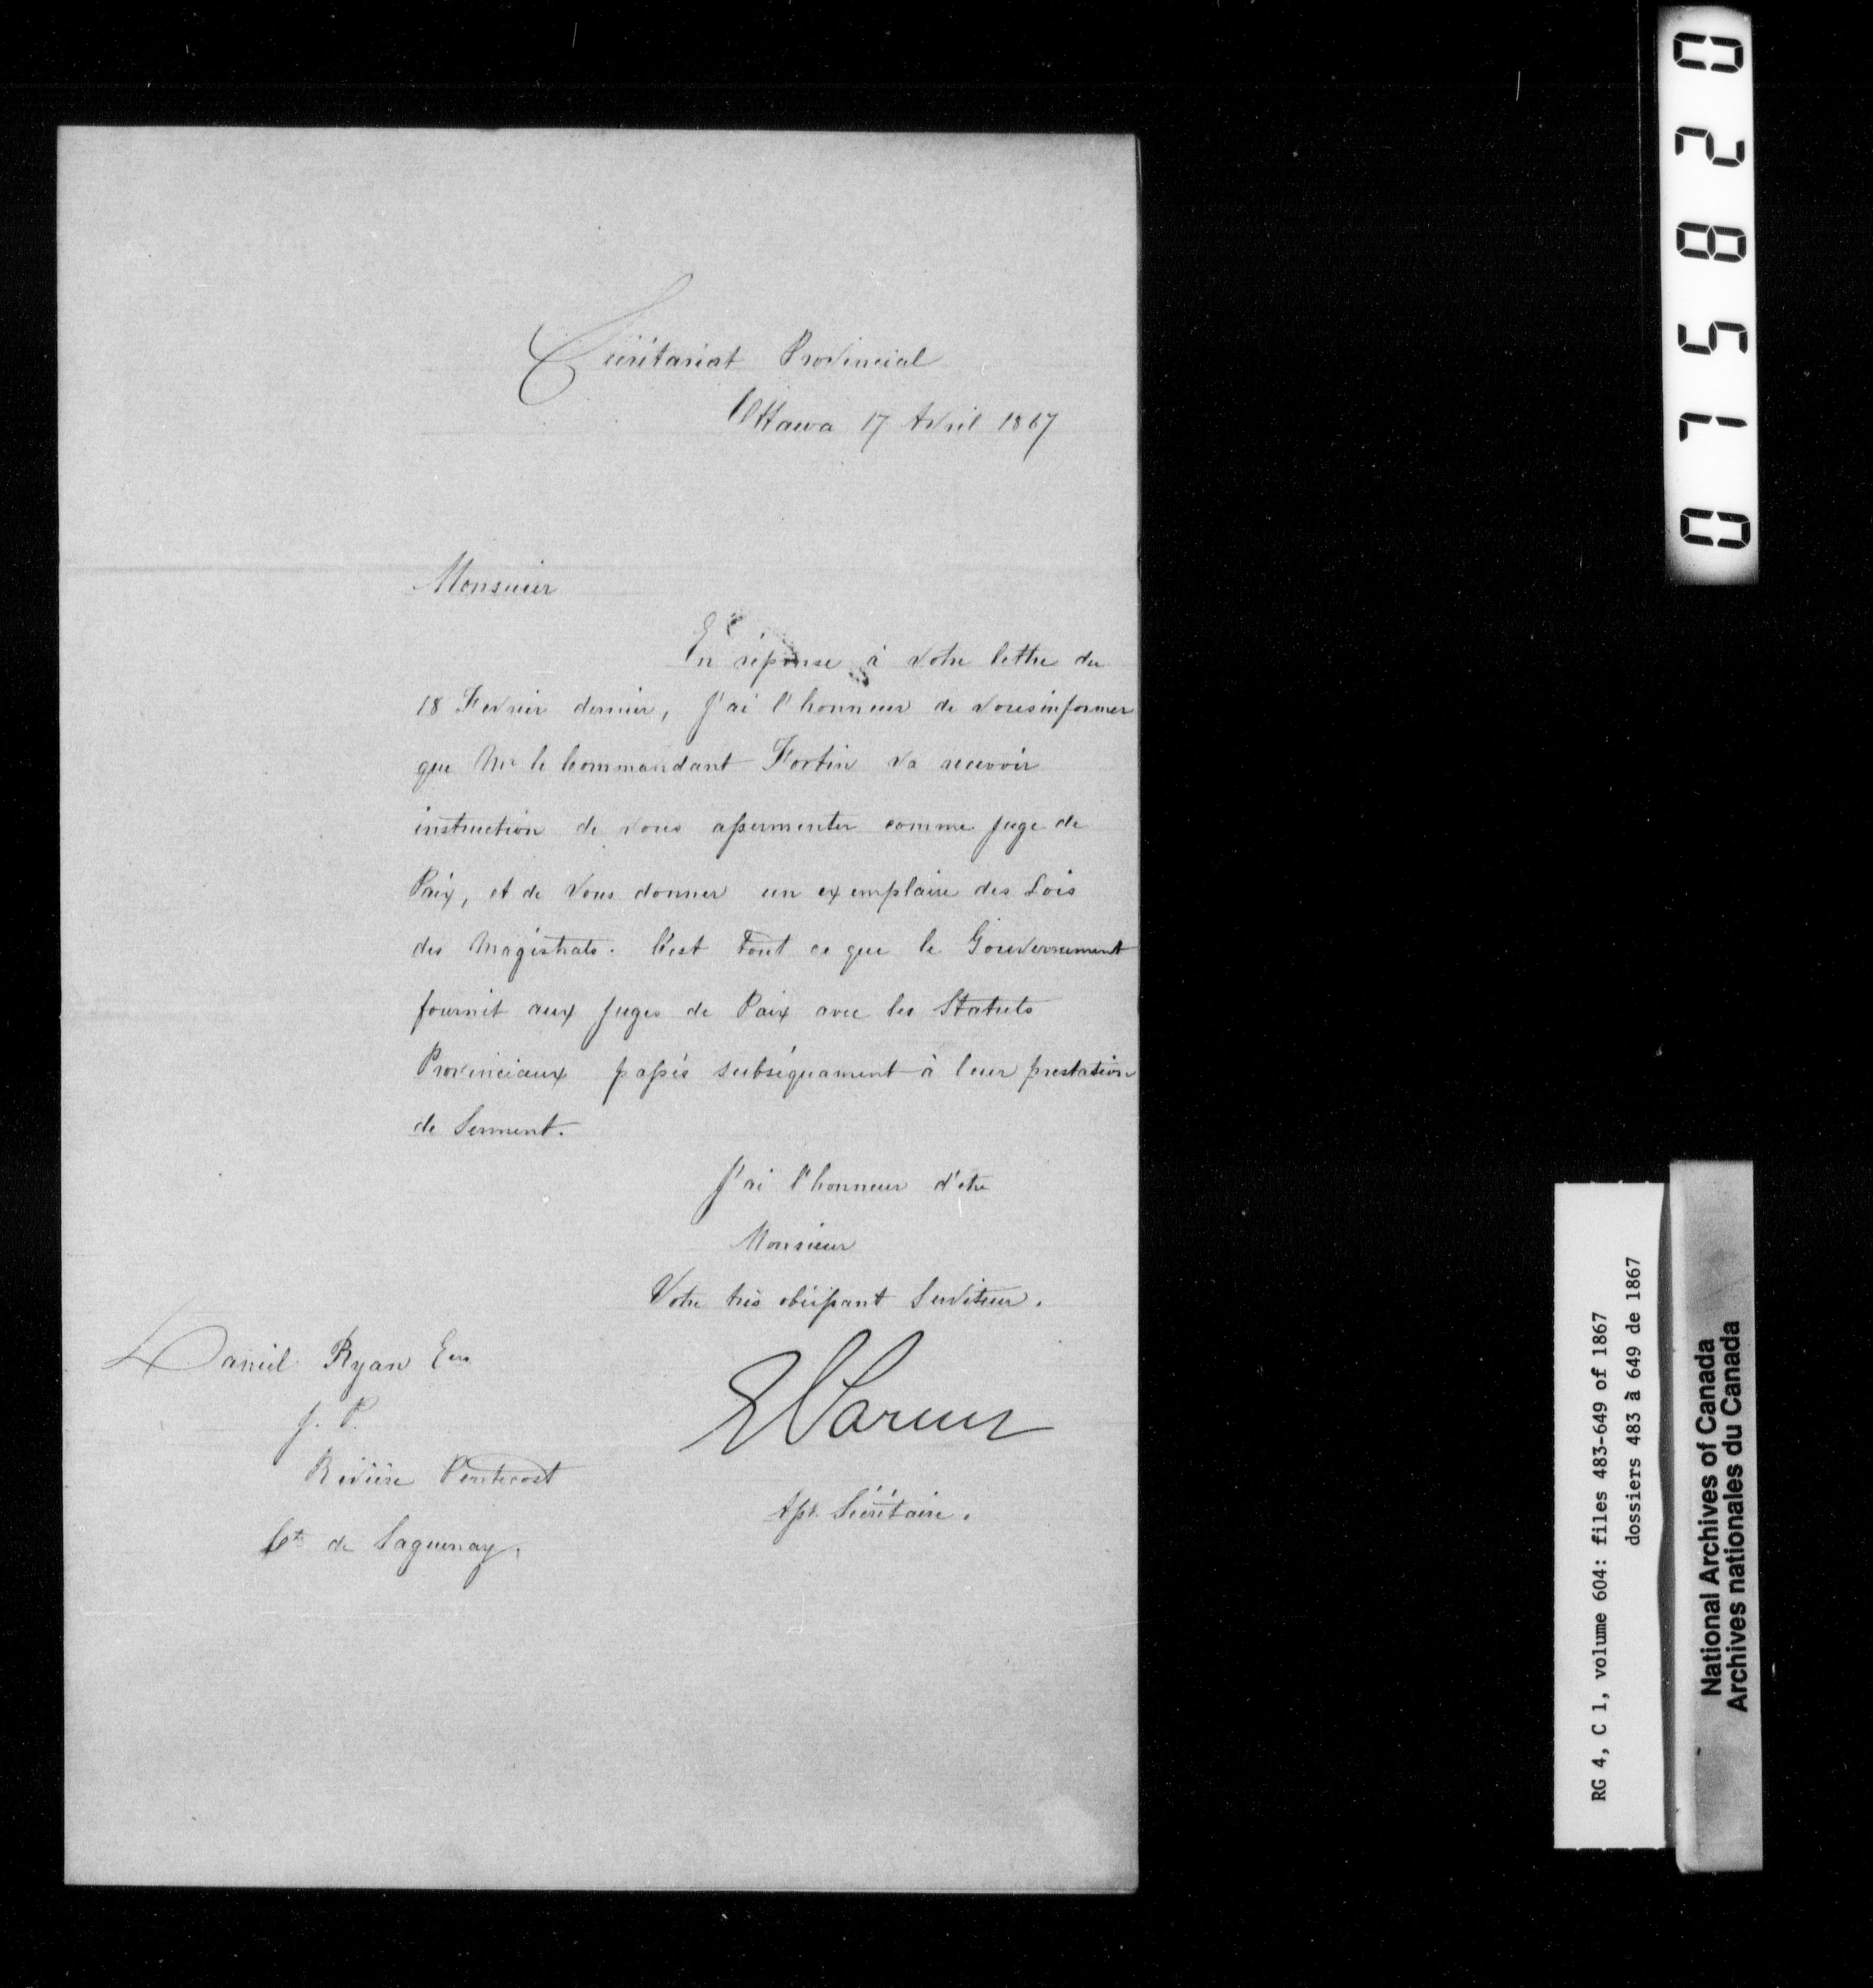 Sécrétariat Provincial
Ottawa 17 Avril 1867
Monsieur
En réponse à votre lettre du
18 Fevrier dernier, J'ai l'honneur de vous informer
que Mr le Commandant Fortin va recevoir
instruction de vous assermenter comme Juge de
Paix, et de vous donner un exemplaire des Lois
des Magistrats. C'est tout ce que le Gouvernement
fournit aux Juges de Paix avec les Statuts
Provinciaux passés subséquament à leur prestation
de Serment.
J'ai l'honneur d'etre
Monsieur
Votre très obéissant Serviteur.
Daniel Ryan Ecr
J. P.
Rivière Pentecost
Ct de Saguenay.
E Parent
Asst. Sécrétaire.
028510
RG 4, C 1, volume 604: files 483-649 of 1867
dossiers 483 à 649 de 1867
National Archives of Canada
Archives nationales du Canada